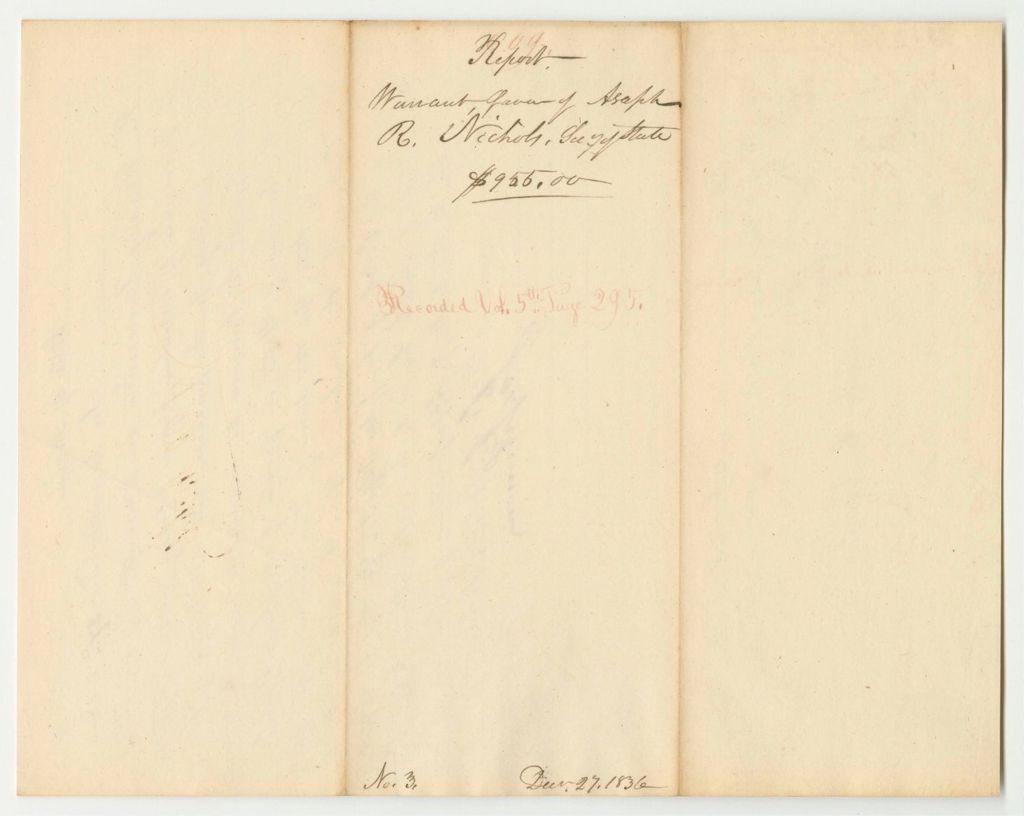 Report.
Warrant, favor of Asaph
R. Nichols, Secy of State
$955.00
Recorded Vol. 5th. Page 295.
No. 3.
Decr. 27. 1836